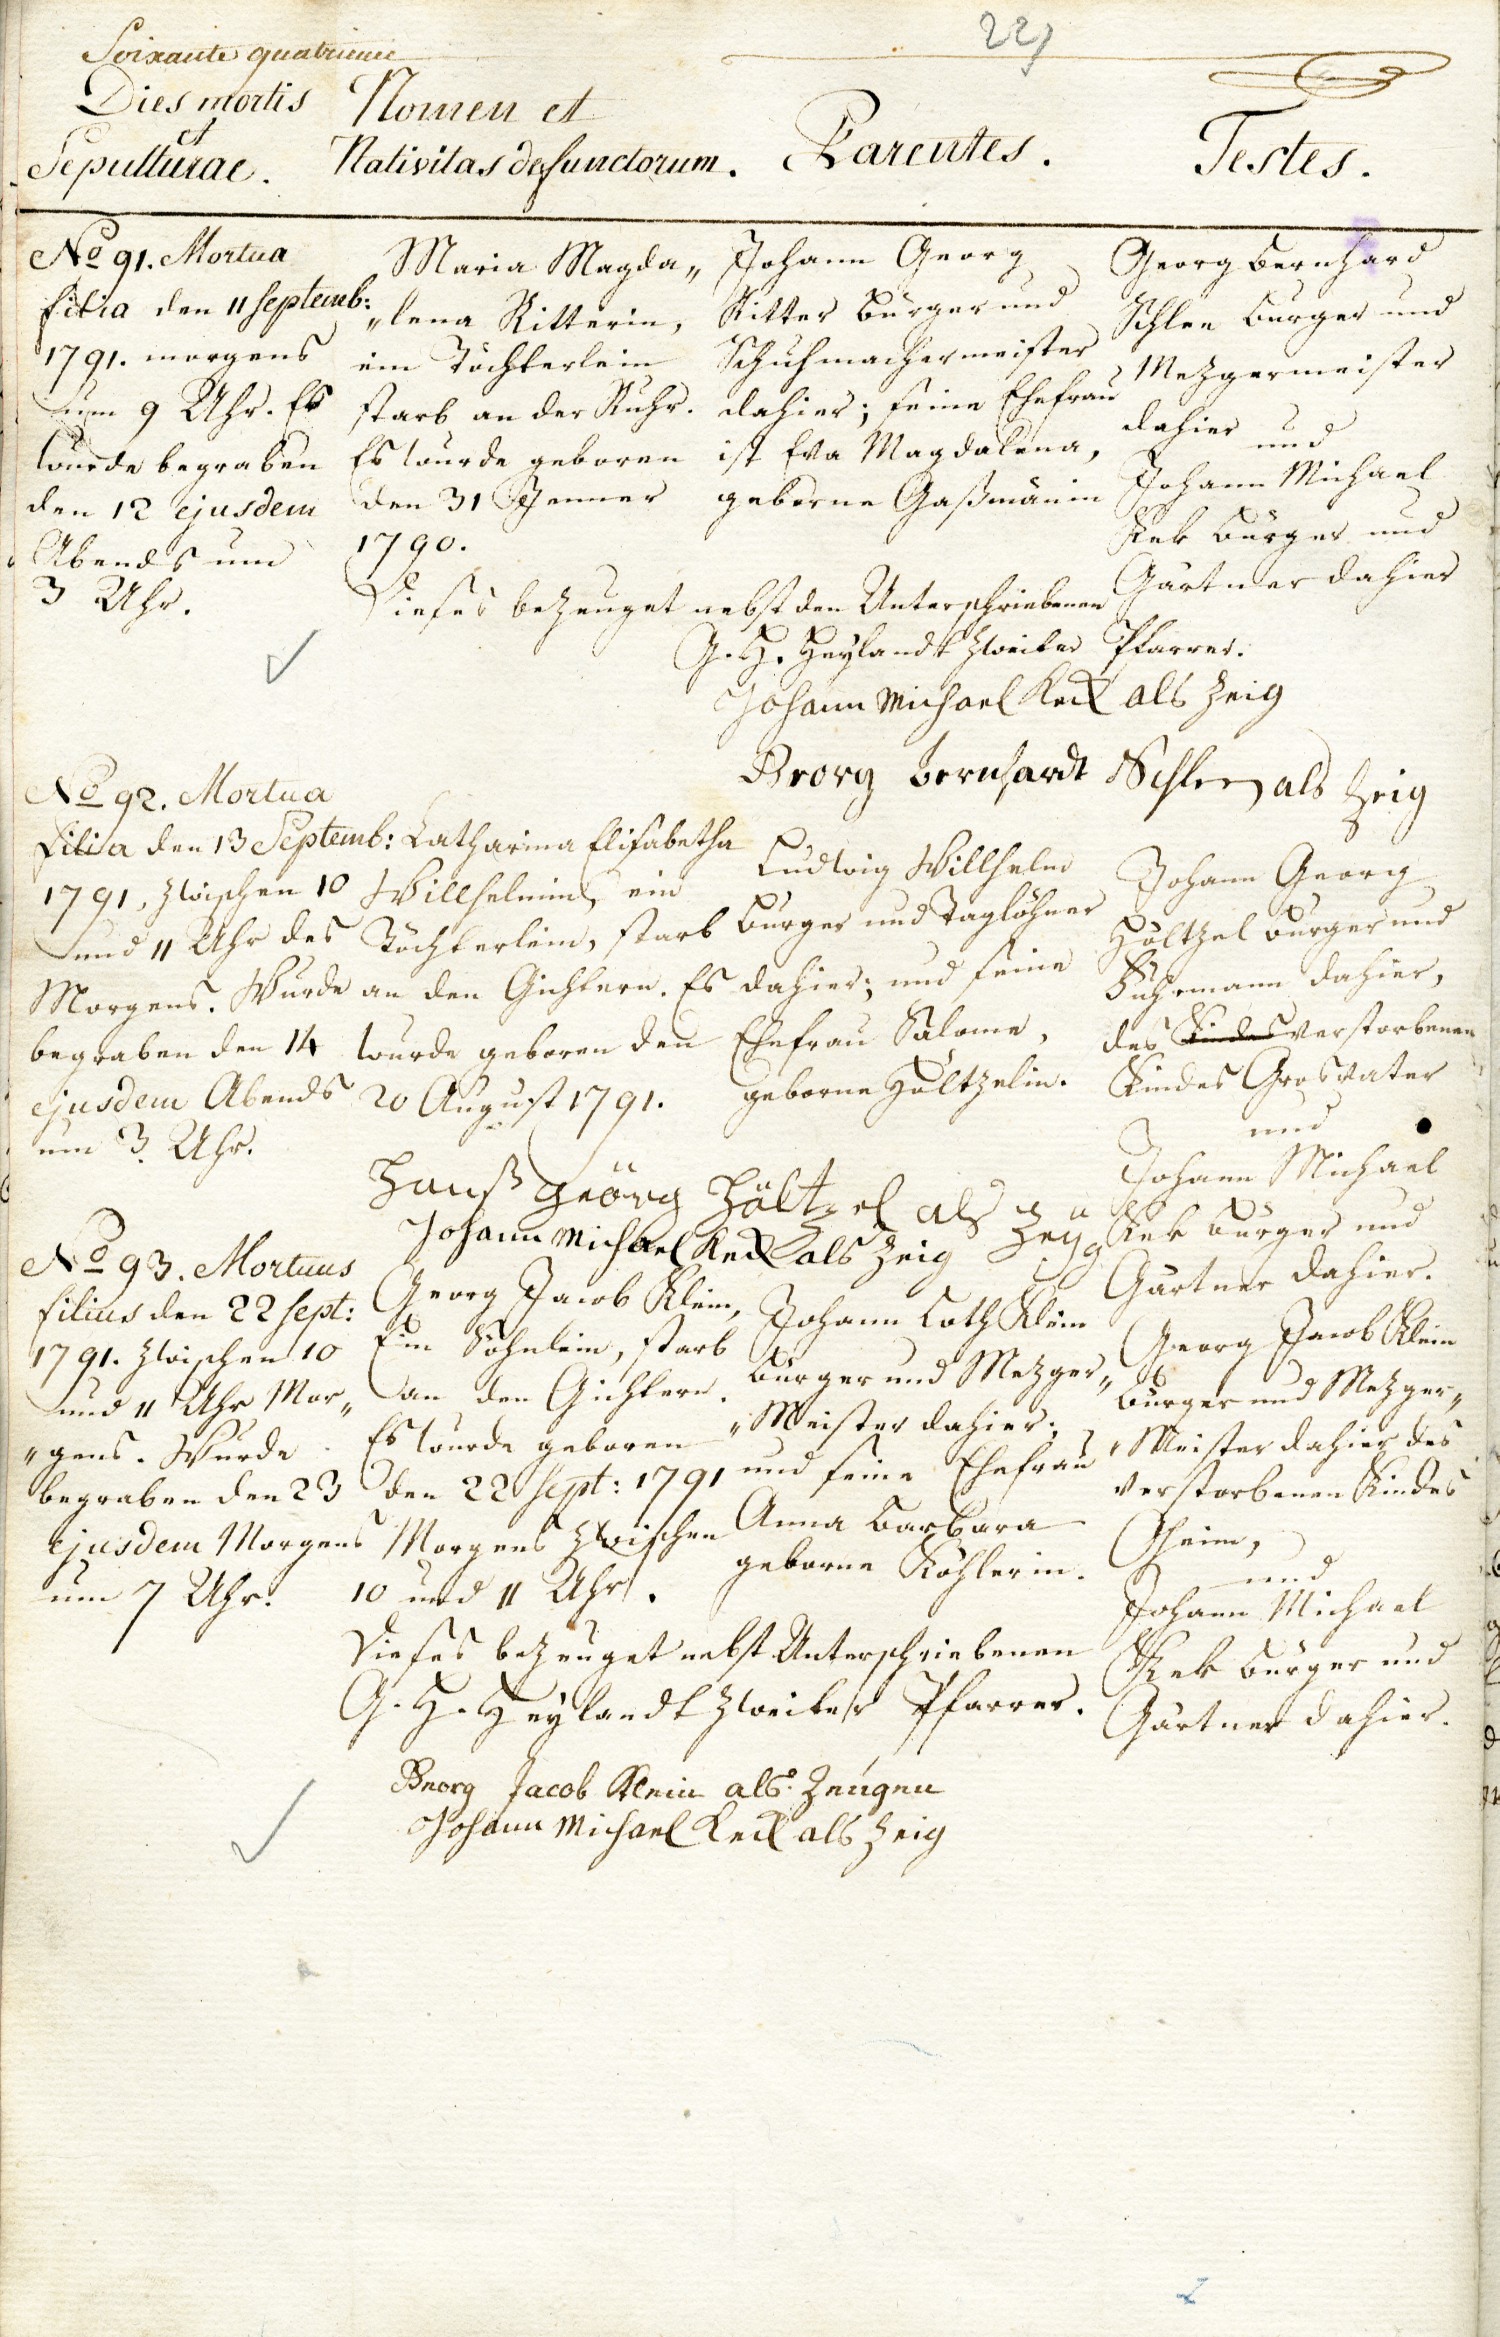 Soixante quatrieme
Dies mortis
et
Sepulturae.
Nomen et
Nativitas defunctorum.
Parentes.
Testes.
No 91. Mortua
filia den 11 septemb:
1791. morgens
um 9 Uhr. Es
wurde begraben
den 12 ejusdem
Abends um
3 Uhr.
Maria Magda„
„lena Ritterin,
ein Töchterlein
starb an der Ruhr.
Es wurde geboren
den 31 Jenner
1790.
Johann Georg
Ritter Burger und
Schuhmachermeister
dahier; seine Ehefrau
ist Eva Magdalena,
geborne Gaßmänin
Georg Bernhard
Schlee Burger und
Mezgermeister
dahier und
Johann Michael
Kek Burger und
Gärtner dahier
Dieses bezeuget nebst den Unterschriebenen
G. H. Heylandt zweiter Pfarrer.
Johann Michael Keck als Zeig
Georg bernhardt Schlee als Zeig
No 92. Mortua
filia den 13 Septemb:
1791, zwischen 10
und 11 Uhr des
Morgens. Wurde
begraben den 14
ejusdem Abends
um 3. Uhr.
Catharina Elisabetha
Willhelmin, ein
Töchterlein, starb
an den Gichtern. Es
wurde geboren den
20 August 1791.
Ludwig Willhelm
Burger und Taglöhner
dahier; und seine
Ehefrau Salome,
geborne Höltzelin.
Johann Georg
Höltzel burger und
Fuhrmann dahier,
des Kindes verstorbenen
Kindes Grosvater
und
Johann Michael
Kek burger und
Gärtner dahier.
Hanß geörg Höltzel als Zeüg
Johann Michael Keck als Zeig
No 93. Mortuus
filius den 22 sept:
1791. zwischen 10
und 11 Uhr Mor„
„gens. Wurde
begraben den 23
ejusdem Morgens
um 7 Uhr.
Georg Jacob Klein,
Ein Söhnlein, starb
an den Gichtern.
Es wurde geboren
den 22 sept: 1791
Morgens zwischen
10 und 11 Uhr.
Johann Loth Klein
Burger und Mezger„
„Meister dahier;
und seine Ehefrau
Anna Barbara
geborne Köhlerin.
Georg Jacob Klein
Burger und Mezger„
„Meister dahier des
verstorbenen Kindes
Oheim,
und
Johann Michael
Kek burger und
Gärtner dahier.
Dieses bezeuget nebst Unterschriebenen
G. H. Heylandt zweiter Pfarrer.
Georg Jacob Klein als Zeugen
Johann Michael Keck als Zeig